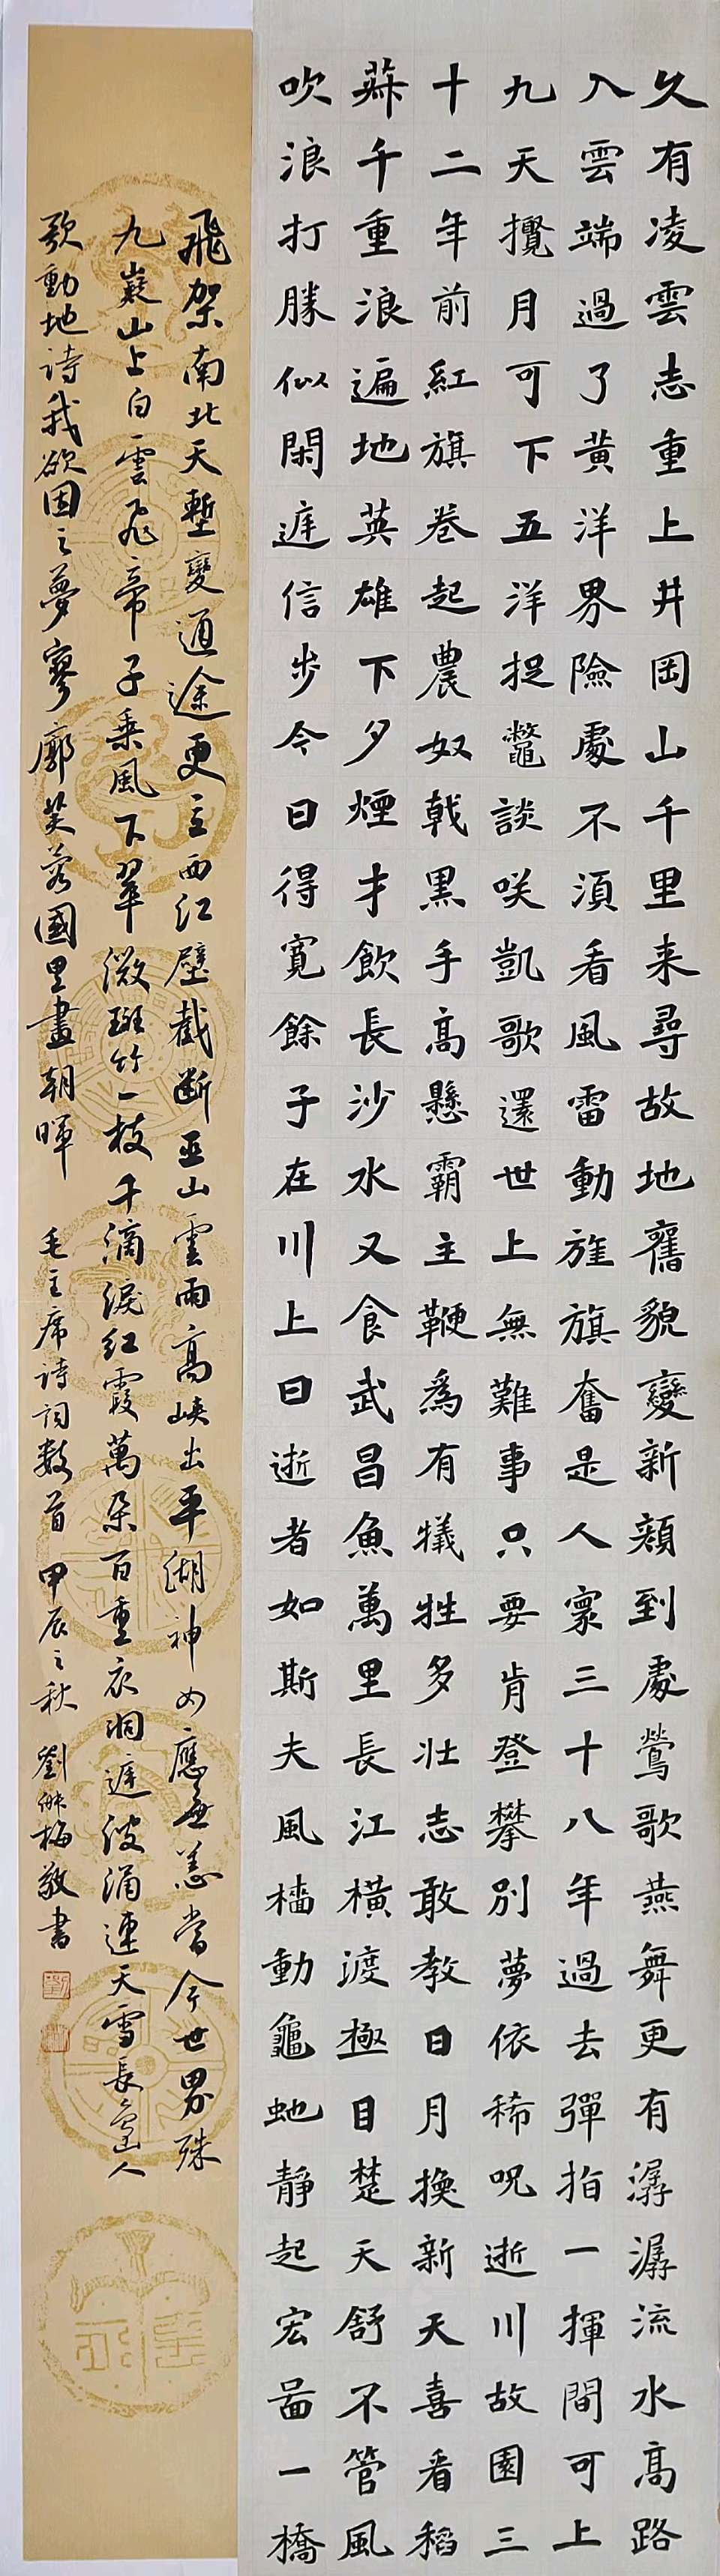 久有凌雲志重上井岡山千里来尋故地舊貌變新顔到處鶯歌燕舞更有潺潺流水高路
入雲端過了黄洋界險處不須看風雷動旌旗奮是人寰三十八年過去彈指一揮間可上
九天攬月可下五洋捉鼈談咲凱歌還世上無難事只要肯登攀別夢依稀呪逝川故園三
十二年前紅旗卷起農奴戟黑手高懸霸主鞭爲有犠牲多壮志敢教日月換新天喜看稻
菽千重浪遍地英雄下夕煙才飲長沙水又食武昌魚萬里長江橫渡極目楚天舒不管風
吹浪打勝似閑庭信步今日得寬餘子在川上曰逝者如斯夫風檣動龜虵靜起宏啚一橋
飛架南北天塹變通途更立西江壁截斷巫山雲雨高峽出平湖神女應無恙當今世界殊
九嶷山上白雲飛帝子乘風下翠微斑竹一枝千滴淚紅霞萬朵百重衣洞庭波涌連天雪長島人
歌動地詩我欲因之夢寥廓芙蓉國里盡朝暉 毛主席詩詞数首 甲辰之秋 劉 梅敬書